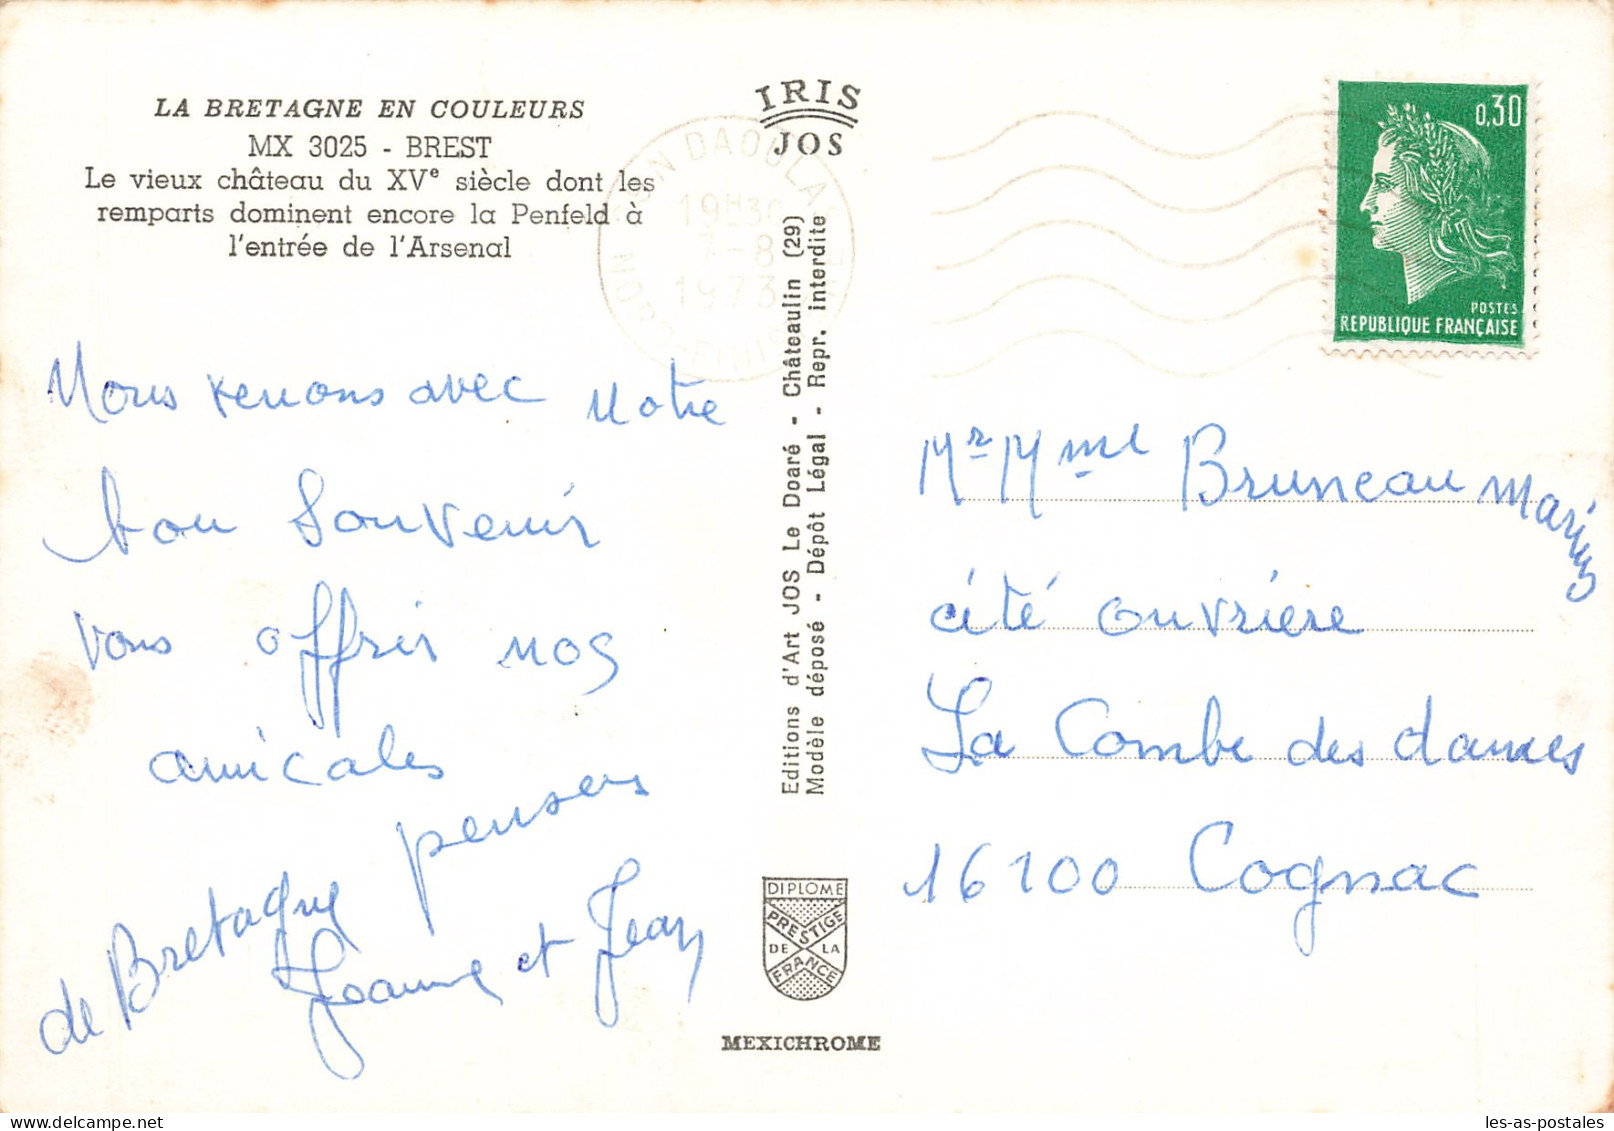 LA BRETAGNE EN COULEURS
MX 3025 - BREST
Le vieux château du XVe siècle dont les
remparts dominent encore la Penfeld à
l'entrée de l'Arsenal
IRIS
JOS
DAOULAS
19H30
7-8
1973
NORD FINISTERE
0,30
POSTES
REPUBLIQUE FRANÇAISE
Nous venons avec notre
bon Souvenir
vous offrir nos
amicales
pensers
de Bretagne
Jeanne et Jean
Editions d'Art JOS Le Doaré - Châteaulin (29)
Modèle déposé - Dépôt Légal - Repr. interdite
Mr Mme Bruneau Marius
cité ouvrière
La Combe des dames
16100 Cognac
DIPLOME
PRESTIGE
DE LA
FRANCE
MEXICHROME
les-as-postales